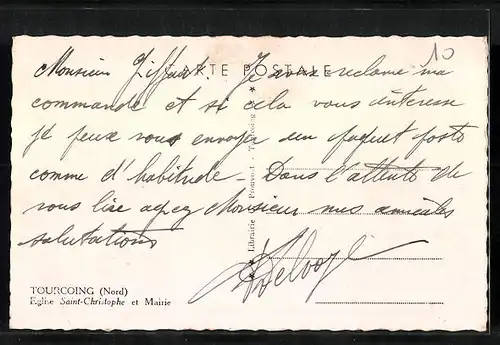 10
CARTE POSTALE
Monsieur Ziffart. Je vous reclame ma
commande et si cela vous interesse
je peux vous envoyer un paquet poste
comme d'habitude. Dans l'attente de
vous lire agreez Monsieur mes amicales
salutations
Librairie - Tourcoing
TOURCOING (Nord)
Eglise Saint-Christophe et Mairie